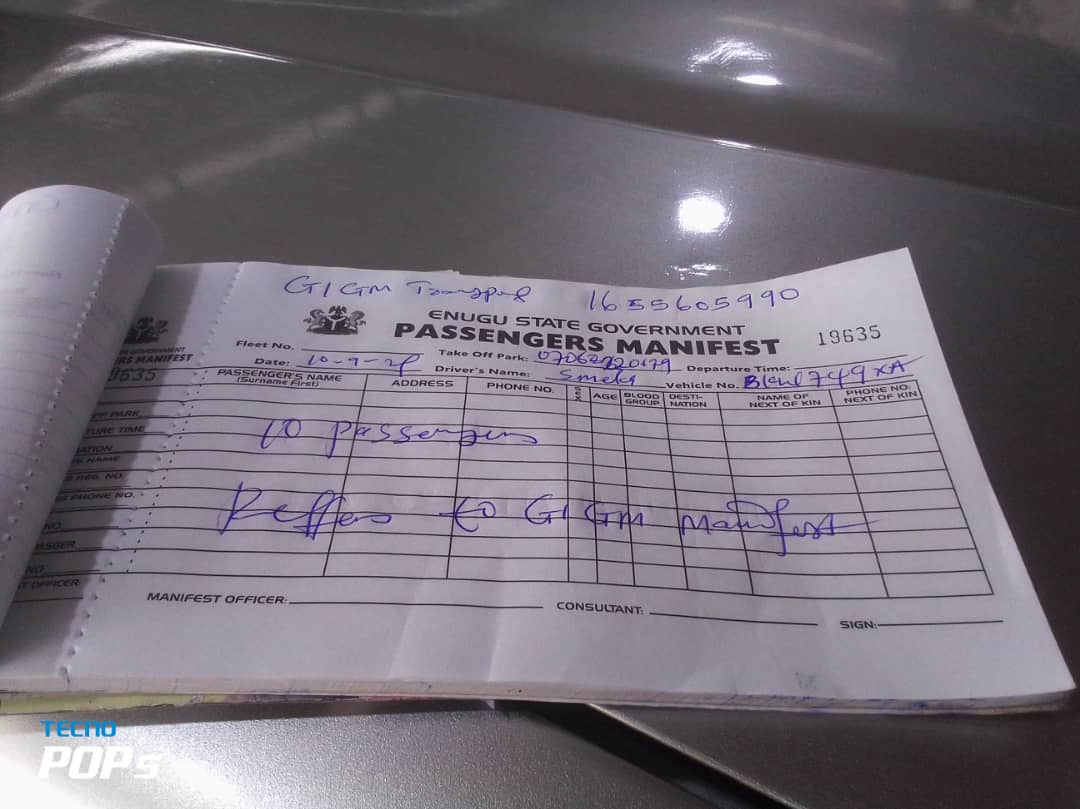 GIGM Transport 1655605990
ENUGU STATE GOVERNMENT
PASSENGERS MANIFEST
19635
Fleet No. Take Off Park: Departure Time:
Date: Driver's Name: Vehicle No.
PASSENGER'S NAME (Surname First) ADDRESS PHONE NO. SEX AGE BLOOD GROUP DESTI-NATION NAME OF NEXT OF KIN PHONE NO. NEXT OF KIN
10 passengers
Reffers to GIGM manifest
MANIFEST OFFICER: CONSULTANT: SIGN:
GOVERNMENT
RS MANIFEST
9635
FF PARK
TURE TIME
NATION
NAME
REG. NO.
PHONE NO.
NO
NO
T OFFICER:
TECNO
POP 5